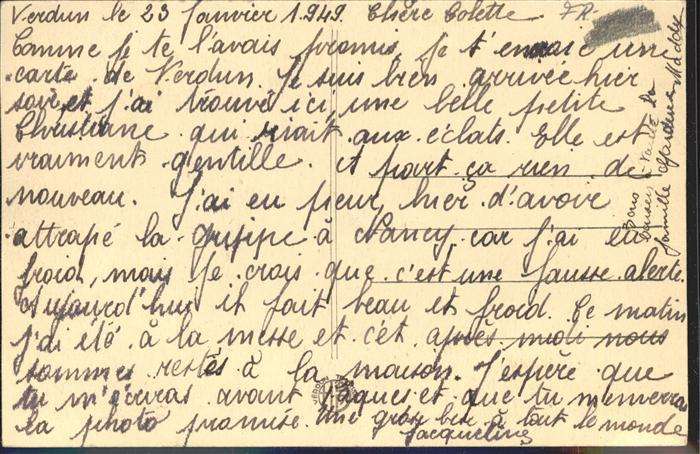 Verdun le 23 Janvier 1949. Chère Colette
Comme je te l'avais promis, je t'envoie une
carte de Verdun. Je suis bien arrivée hier
soir et j'ai trouvé ici une belle petite
Christiane qui riait aux éclats. Elle est
vraiment gentille. A part ça rien de
nouveau. J'ai eu peur hier d'avoir
attrapé la grippe à Nancy car j'ai eu
froid, mais je crois que c'est une fausse alerte.
Aujourd'hui il fait beau et froid. Ce matin
j'ai été à la messe et cet après midi nous
sommes restés à la maison. J'espère que
tu m'écriras avant Pâques et que tu m'enverra
la photo promise. Une gros bise à tout le monde
Jacqueline
Bons baisers à toute la
famille Maddy